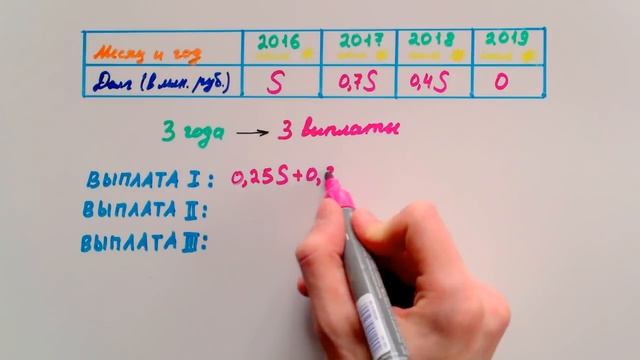 Месяц и год 2016 2017 2018 2019
Долг (в млн. руб.) S 0,7S 0,4S 0
3 года → 3 выплаты
ВЫПЛАТА I: 0,25S+0,
ВЫПЛАТА II:
ВЫПЛАТА III: